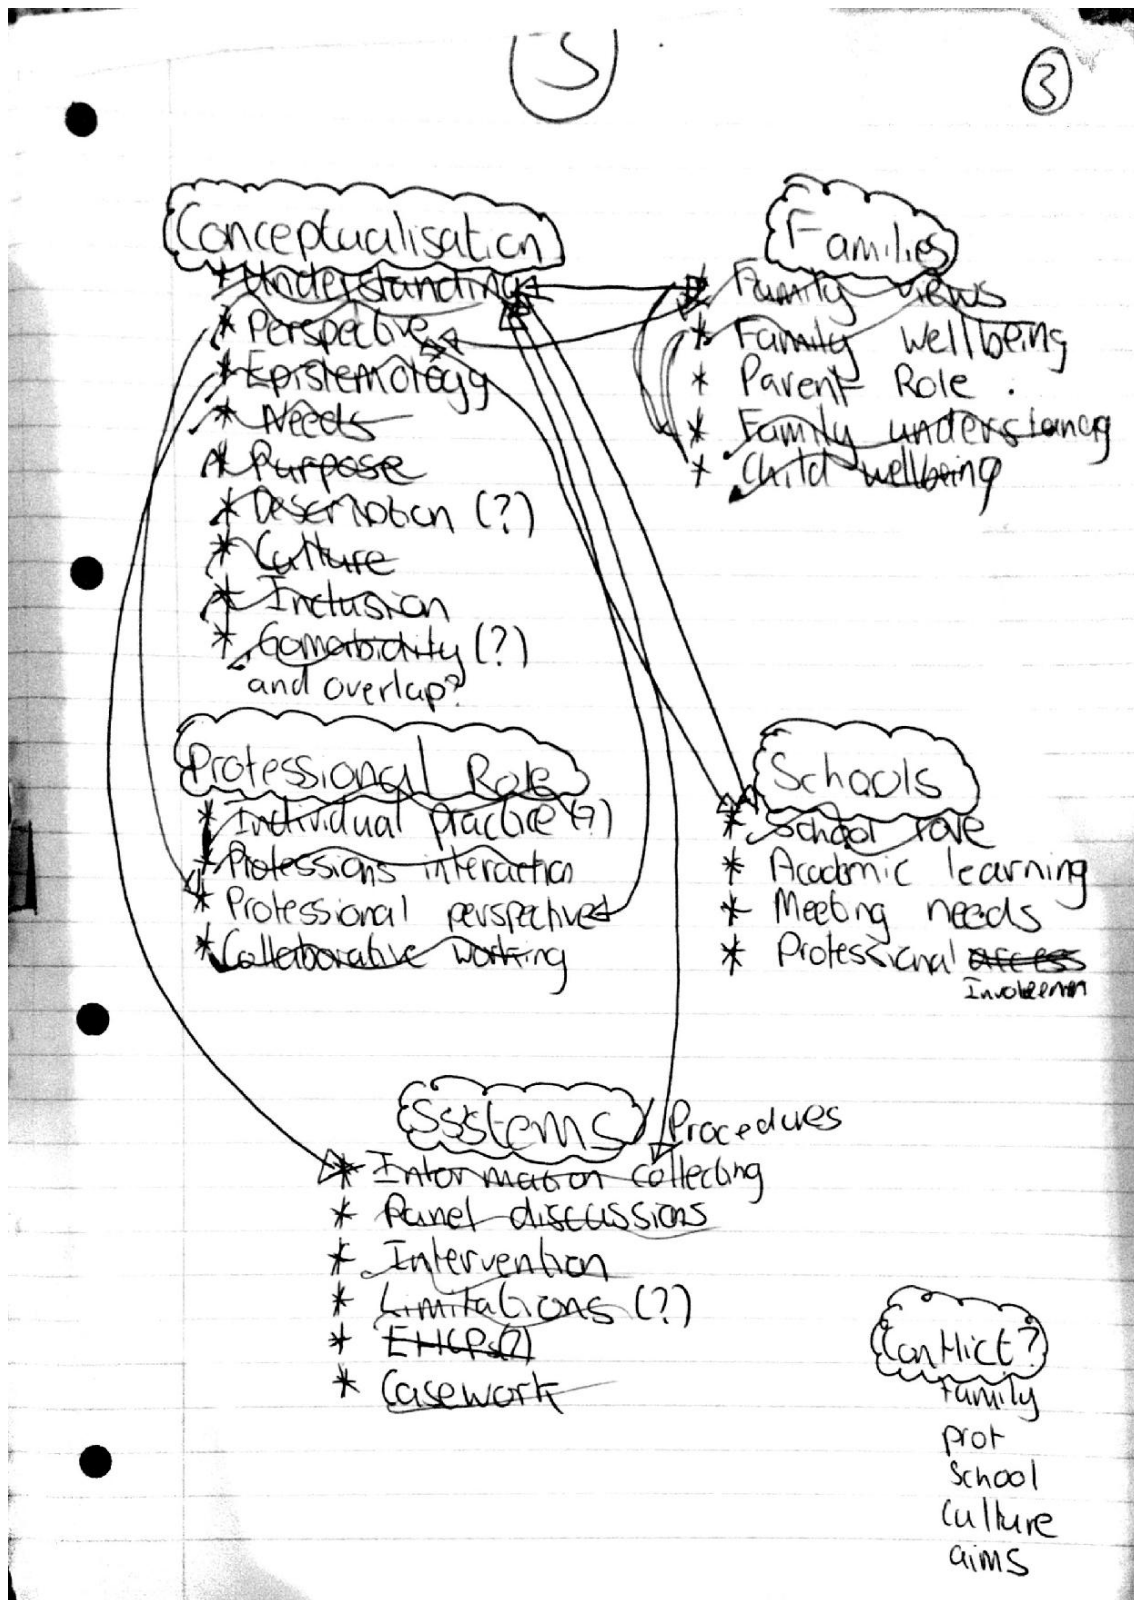 3
Conceptualisation
* Understanding
* Perspective
* Epistemology
* Needs
* Purpose
* Description (?)
* Culture
* Inclusion
* Comorbidity (?)
and overlap?
Families
* Family views
* Family wellbeing
* Parent Role .
* Family understanding
* Child wellbeing
Professional Role
* Individual practice (?)
* Professions interaction
* Professional perspective
* Collaborative working
Schools
* School role
* Academic learning
* Meeting needs
* Professional access
Systems / Procedures
* Information collecting
* Panel discussions
* Intervention
* Limitations (?)
* EHCPs(?)
* Casework
Conflict?
family
prof
school
culture
aims